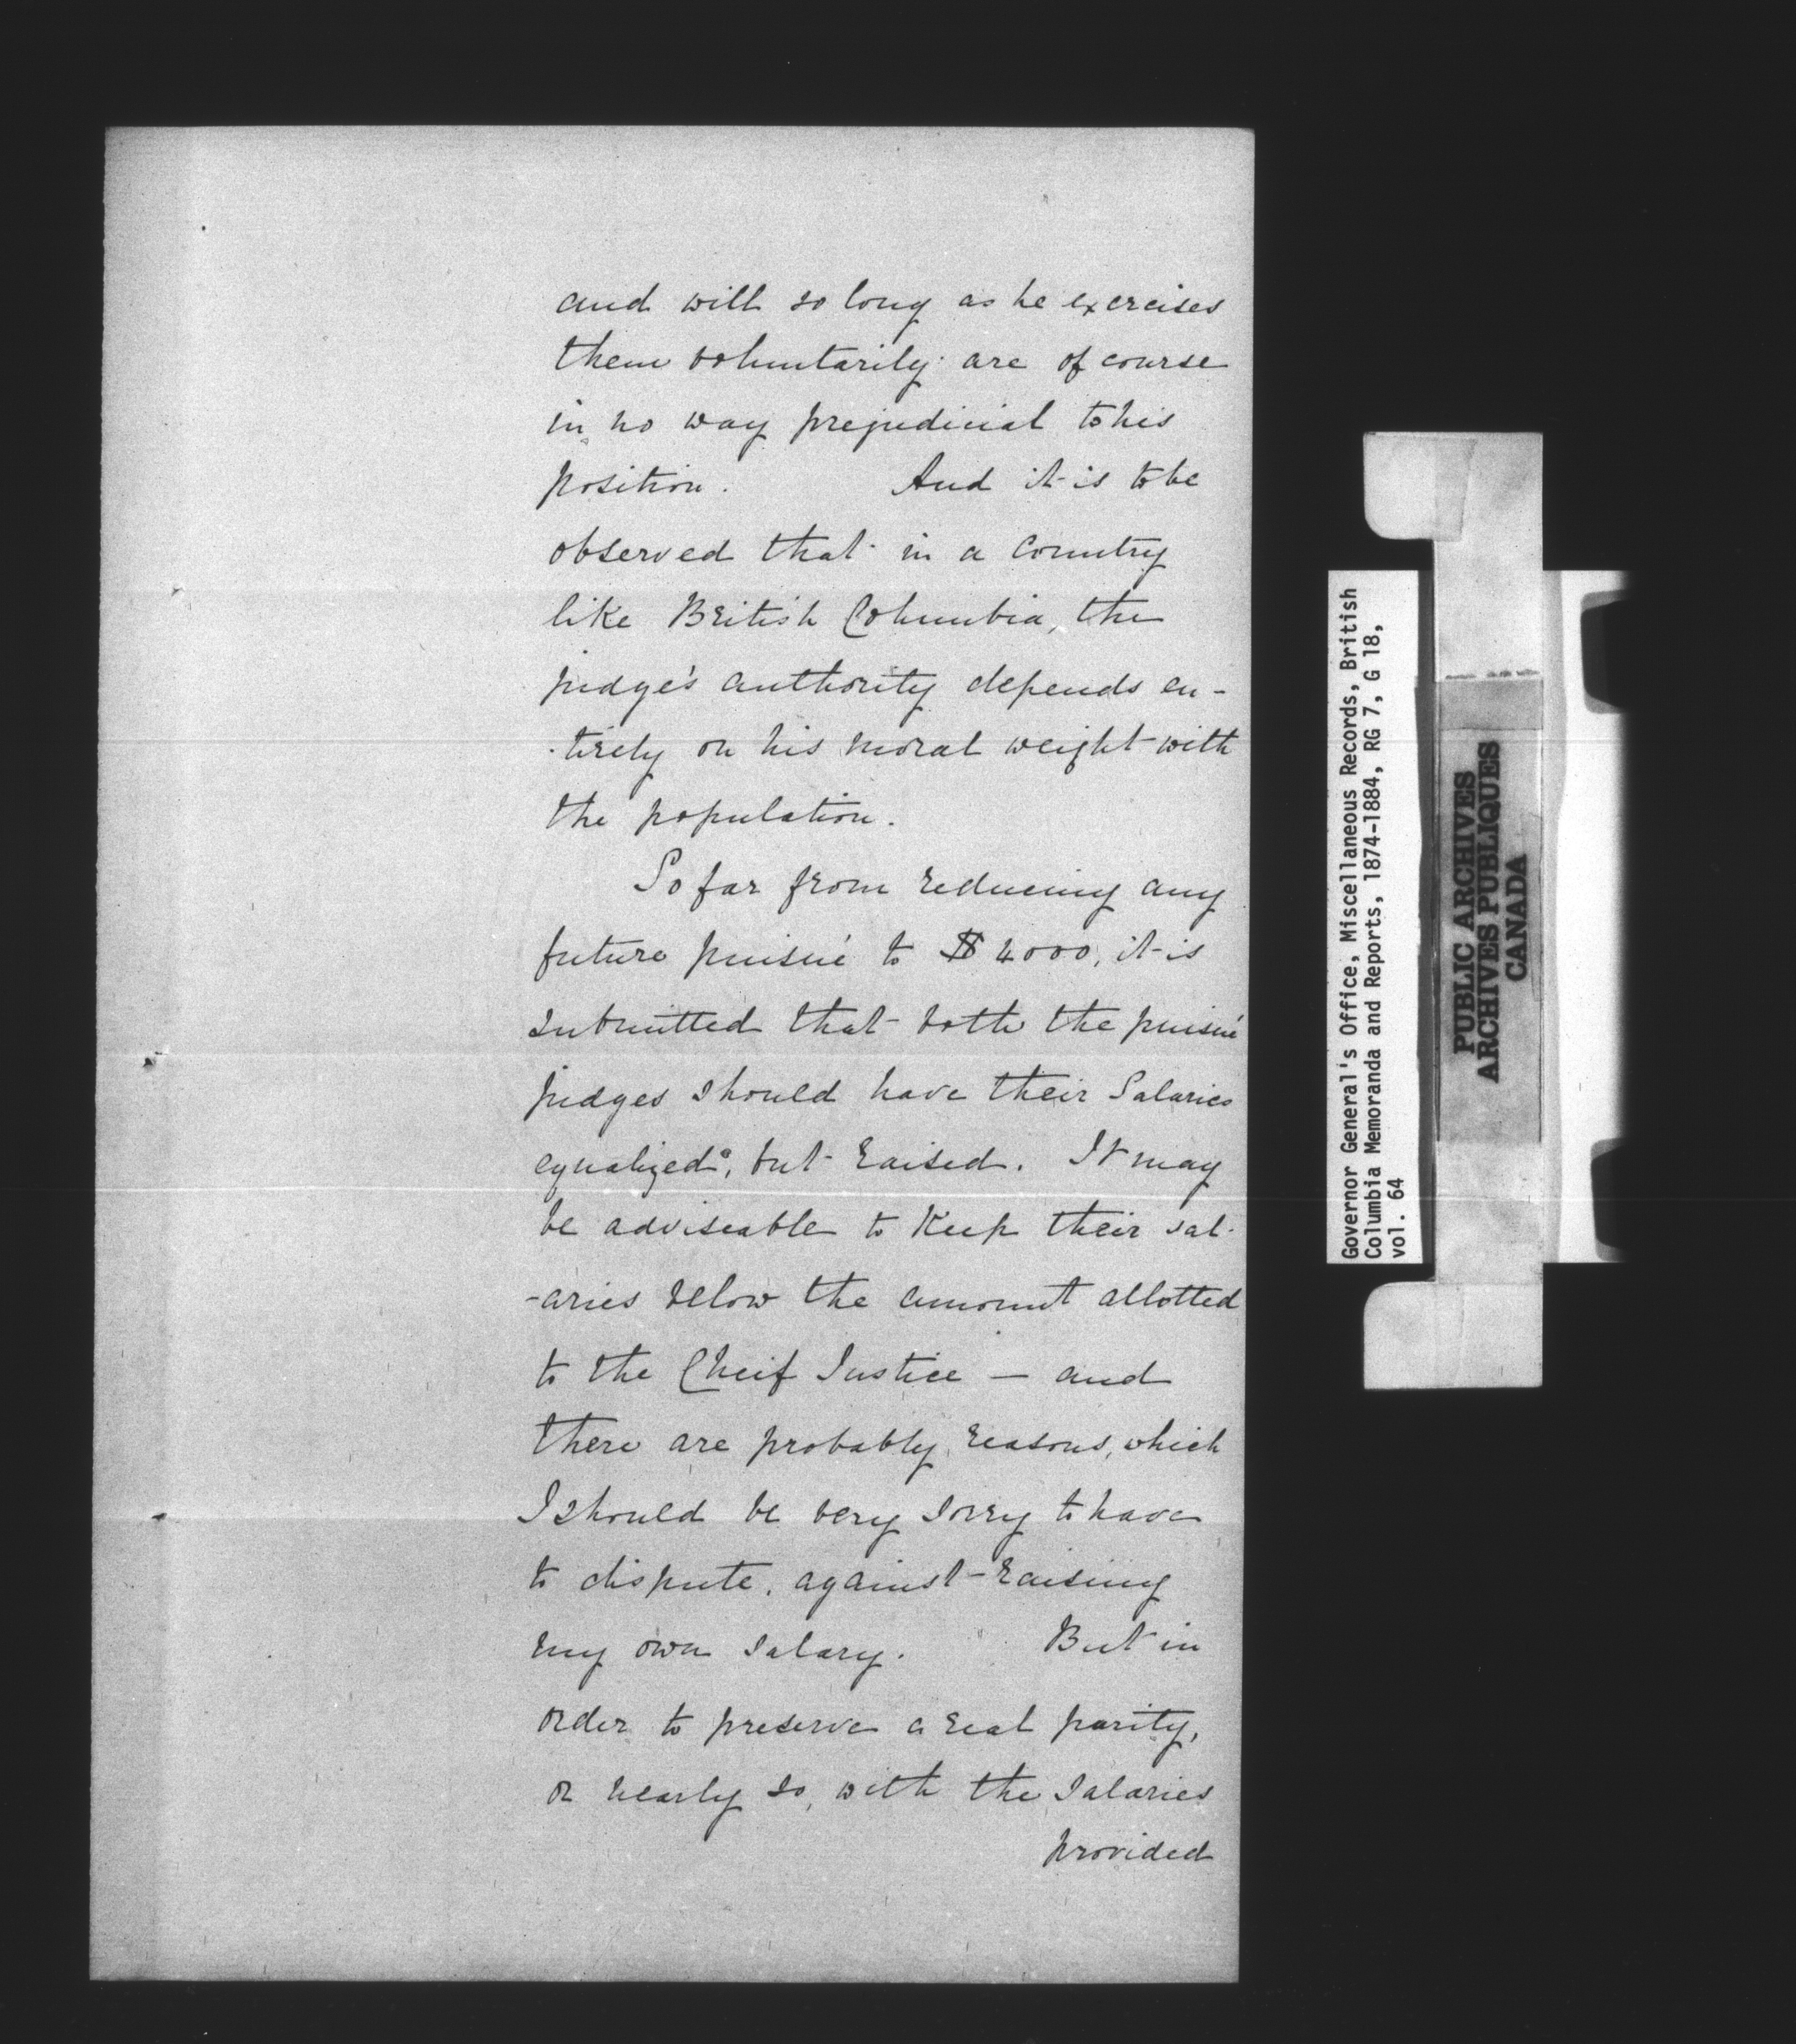 and will so long as he exercises
them voluntarily are of course
in no way prejudicial to his
position. And it is to be
observed that in a country
like British Columbia, the
judge's authority depends en-
-tirely on his moral weight with
the population.
So far from reducing any
future puisné to $4000, it is
submitted that both the puisné
judges should have their Salaries
equalized, but raised. It may
be adviseable to Keep their sal-
-aries below the amount allotted
to the Cheif Justice — and
there are probably reasons, which
I should be very sorry to have
to dispute, against raising
my own salary. But in
order to preserve a real parity,
or nearly so, with the Salaries
provided
Governor General's Office, Miscellaneous Records, British
Columbia Memoranda and Reports, 1874-1884, RG 7, G 18,
vol. 64
PUBLIC ARCHIVES
ARCHIVES PUBLIQUES
CANADA